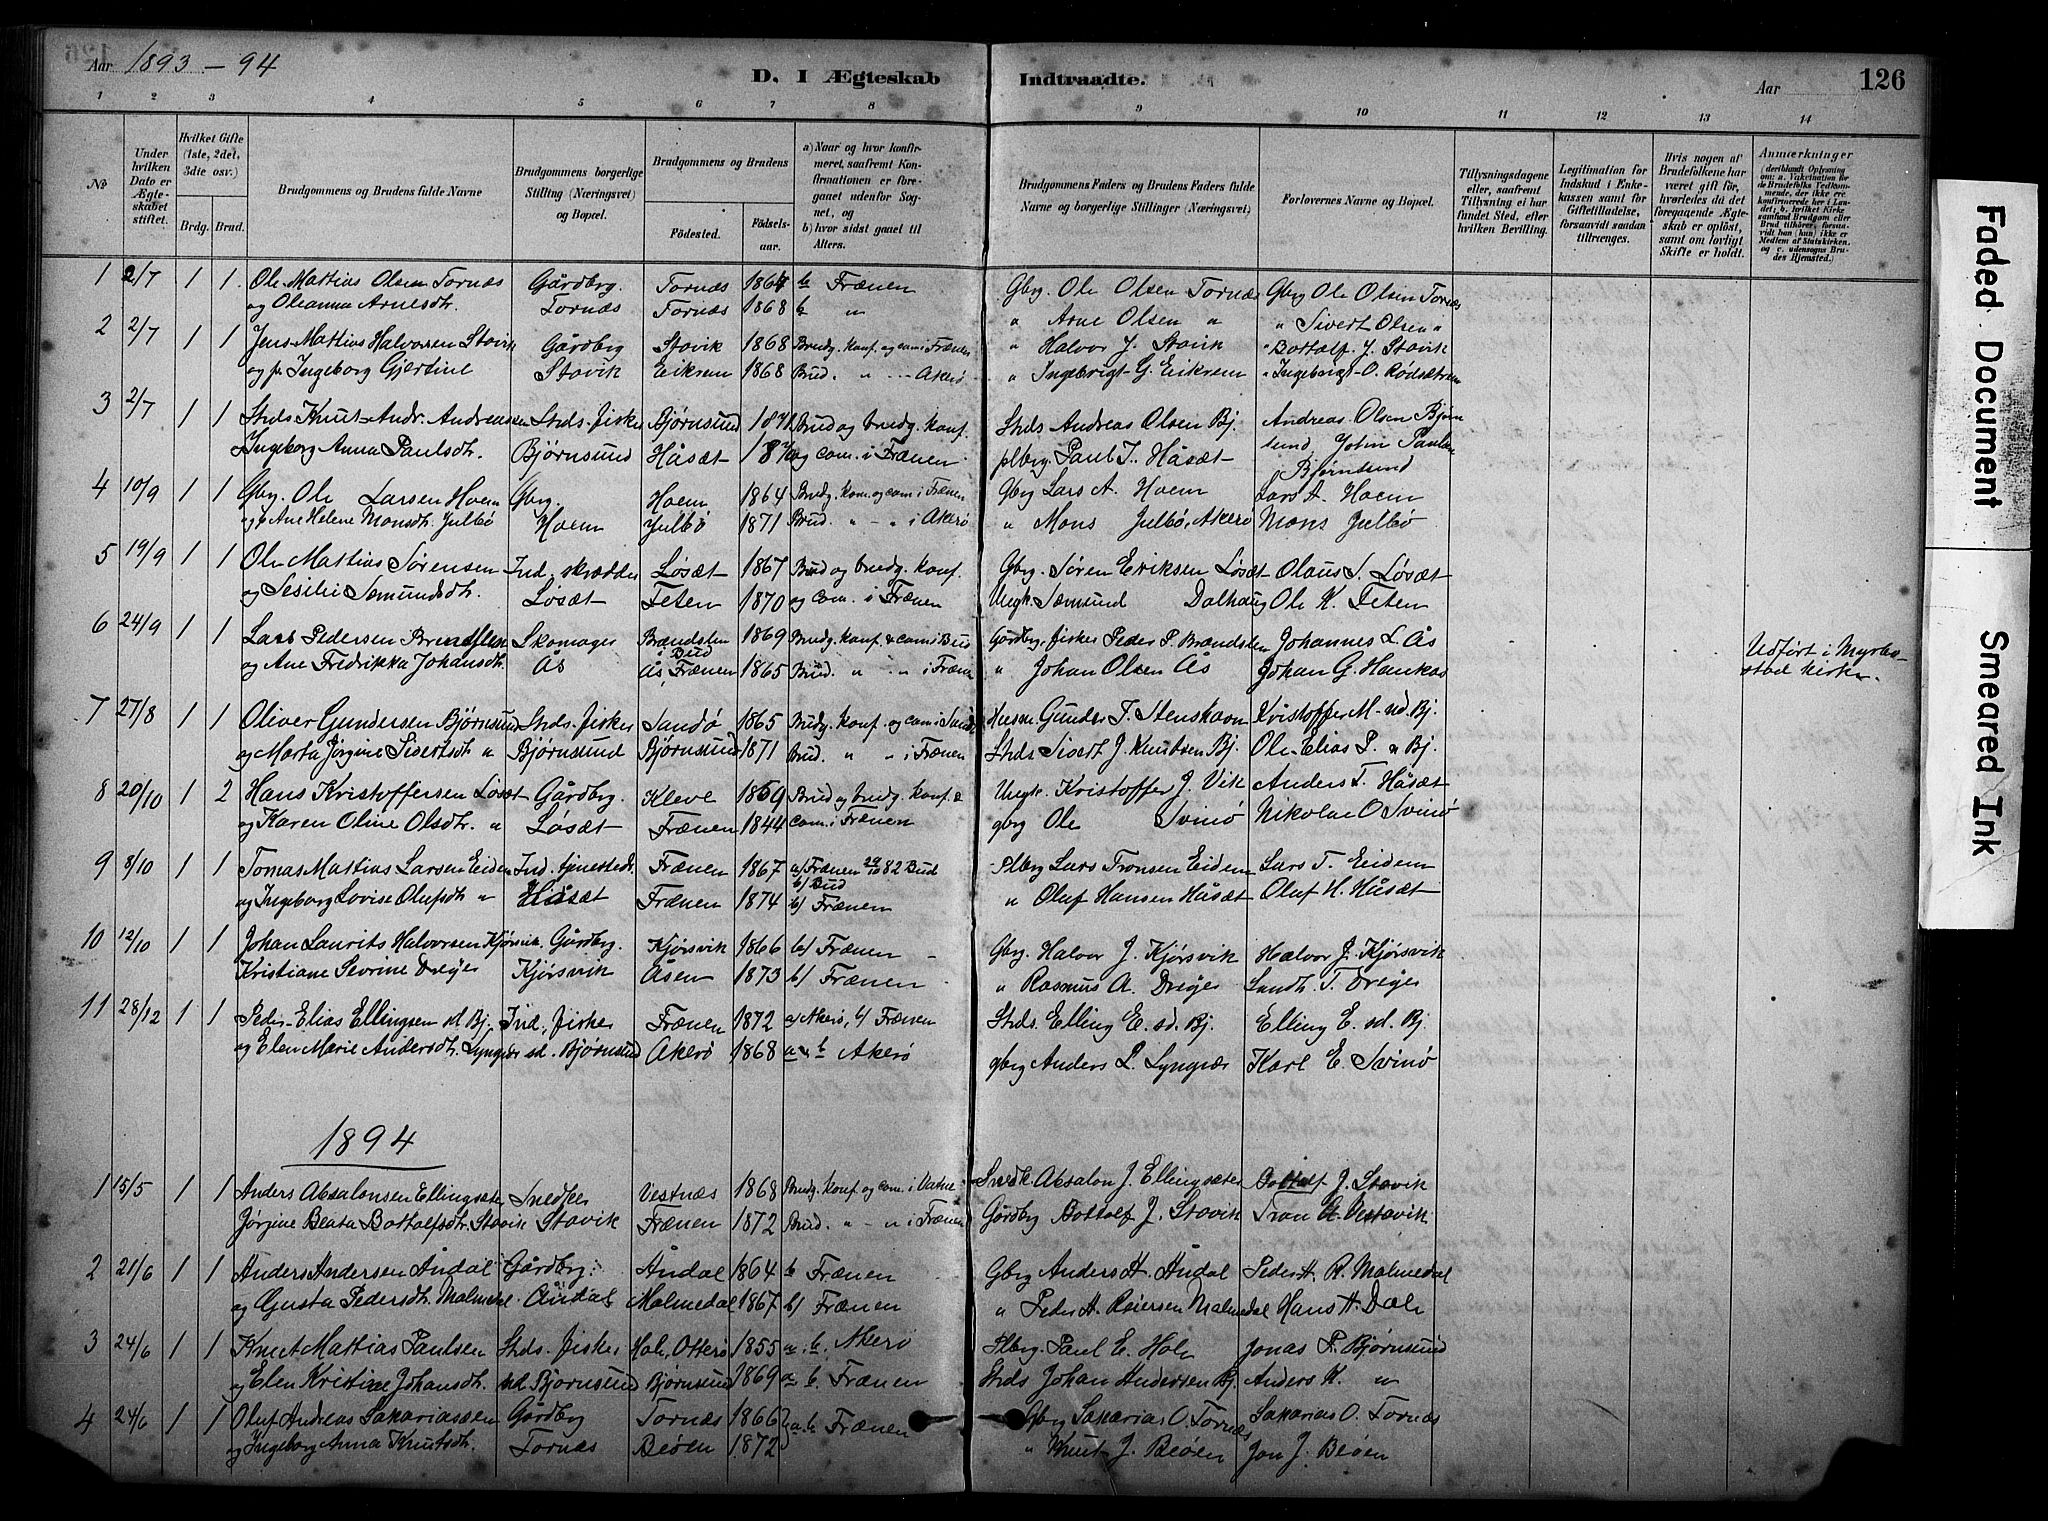 Aar 1893 – 94
D. I Ægteskab Indtraadte.
Aar 126
1 2 3 4 5 6 7 8 9 10 11 12 13 14
No
Under hvilken Dato er Ægteskabet stiftet.
Hvilket Gifte (1ste, 2det, 3die osv.)
Brdg. Brud.
Brudgommens og Brudens fulde Navne
Brudgommens borgerlige Stilling (Næringsvei) og Bopæl.
Brudgommens og Brudens
Fødested. Fødselsaar.
a) Naar og hvor konfirmeret, saafremt Konfirmationen er foregaaet udenfor Sognet, og b) hvor sidst gaaet til Alters.
Brudgommens Faders og Brudens Faders fulde Navne og borgerlige Stillinger (Næringsvei)
Forlovernes Navne og Bopæl.
Tillysningsdagene eller, saafremt Tillysning ei har fundet Sted, efter hvilken Bevilling.
Legitimation for Indskud i Enkekassen samt for Giftetilladelse, forsaavidt saadan tiltrænges.
Hvis nogen af Brudefolkene har været gift før, hvorledes da det foregaaende Ægteskab er opløst, samt om lovligt Skifte er holdt.
Anmærkninger
1 2/7 1 1 Ole Mattias Olsen Tornæs Gårdbg. Tornæs 1864 b Frænen Gbrg. Ole Olsen Tornæs Gbrg Ole Olsen Tornæs
og Oleanna Arnesdtr. Tornæs Tornæs 1868 b " " Arne Olsen " " Sivert Olsen "
2 2/7 1 1 Jens Mattias Halvorsen Stavik Gårdbg Stavik 1868 Brudg. konf. og com. i Frænen " Halvor J. Stavik " Bottolf J. Stavik
og Ingeborg Gjertine Stavik Eikrem 1868 Brud. " - - Akerø " Ingebrigt G. Eikrem " Ingebrigt O. Rødsætrem
3 2/7 1 1 Strds Knut Andr. Andreassen Strds. fisker Bjørnsund Brud og brudg. konf. Strds Andreas Olsen Bj. Andreas Olsen Bjørn
Ingeborg Anna Paulsdtr. Bjørnsund Håsæt og com. i Frænen plbrg. Paul T. Håsæt sund, John Paulsen
Bjørnsund
4 10/9 1 1 Gbg. Ole Larsen Hoem Gbg. Hoem 1864 Brudg. kom. og com i Frænen Gbrg Lars A. Hoem Lars A. Hoem
Ane Helene Monsdtr. Julbø Hoem Julbø 1871 Brud. " - " i Akerø " Mons Julbø, Akerø Mons Julbø
5 19/9 1 1 Ole Mattias Sørensen Ind. skrædder Løsæt 1867 Brud og brudg. konf. Gbrg. Søren Eriksen Løsæt Olaus S. Løsæt
og Sesilie Semundsdtr. Løsæt Teten 1870 og com. i Frænen Ungk. Sæmund Dalhaug Ole K. Teten
6 24/9 1 1 Lars Pedersen Brendslen Skomager Brændslen Bud 1869 Brudg. konf & com i Bud Gårdbg. fisker Peder P. Brændslen Johannes L. Ås
og Ane Fredrikka Johansdtr. Ås Ås Frænen 1865 Brud. " " i Frænen " Johan Olsen Ås Johan G. Haukås
Udført i Myrbostad kirke.
7 27/8 1 1 Oliver Gundersen Bjørnsund Strds. fisker Sandø 1865 Brudg. konf. og com i Sandø Husm. Gunder T. Stenshavn Kristoffer M. nd. Bj.
og Marta Jørgine Sivertsdtr " Bjørnsund Bjørnsund 1871 Brud. " " i Frænen Strds Sivert J. Knutsen Bj. Ole Elias P. " Bj.
8 20/10 1 2 Hans Kristoffersen Løsæt Gårdbg. Kleve 1869 Brud og brudg. konf. & Ungk. Kristoffer J. Vik Anders T. Håsæt
og Karen Oline Olsdtr. " Løsæt Frænen 1844 com. i Frænen gbrg Ole Svinø Nikolai O Svinø
9 8/10 1 1 Tomas Mattias Larsen Eidem Ind. tjenestedr. Frænen 1867 a) Frænen 29/10 82 Bud b) Bud Plbrg Lars Tronsen Eidem Lars T. Eidem
og Ingeborg Lovise Olufsdtr " Håsæt Frænen 1874 b) Frænen " Oluf Hansen Håsæt Oluf H. Håsæt
10 12/10 1 1 Johan Laurits Halvorsen Kjørsvik. Gårdbg. Kjørsvik 1866 b) Frænen Gbrg. Halvor J. Kjørsvik Halvor J. Kjørsvik
Kristiane Sevrine Drejer Kjørsvik Åsen 1873 b) Frænen " Rasmus A. Drejer Sandh. T. Drejer
11 28/12 1 1 Peder Elias Ellingsen sd Bj. Ind. fisker Frænen 1872 a) Akerø, b) Frænen Strds. Elling E. sd. Bj. Elling E. sd. Bj
og Elen Marie Andersdtr. Lyngvær sd. Bjørnsund Akerø 1868 a & b Akerø gbrg Anders L. Lyngvær Karl E. Svinø
1894
1 15/5 1 1 Anders Absalonsen Ellingsæter Snedker Vestnæs 1868 Brudg. konf. og com. i Vatne Snedk. Absalon J. Ellingsæter Bottolf J. Stavik
Jørgine Beata Bottolfsdtr. Stavik Stavik Frænen 1872 Brud. " - " i Frænen Gårdbg Bottolf J. Stavik Tron Vestavik
2 21/6 1 1 Anders Andersen Åndal Gårdbg. Åndal 1864 b Frænen Gbrg Anders A. Åndal Peder A. R. Malmedal
og Gusta Pedersdtr. Malmedal Åndal Malmedal 1867 b) Frænen " Peder A. Reiersen Malmedal Hans H. Dale
3 24/6 1 1 Knut Mattias Paulsen Strds. fisker Hole, Otterø 1855 a. b. Akerø Plbrg. Paul E. Hole Jonas P. Bjørnsund
og Elen Kristine Johansdtr. sd Bjørnsund Bjørnsund 1869 a b. Frænen Strds Johan Andersen Bj. Anders K. "
4 24/6 1 1 Oluf Andreas Sakariassen Gårdbg Tornæs 1866 a. b. Frænen Gbrg Sakarias O. Tornæs Sakarias O. Tornæs
og Ingeborg Anna Knutsdtr. Tornæs Beøen 1872 " Knut J. Beøen Jon J. Beøen
Faded Document
Smeared Ink